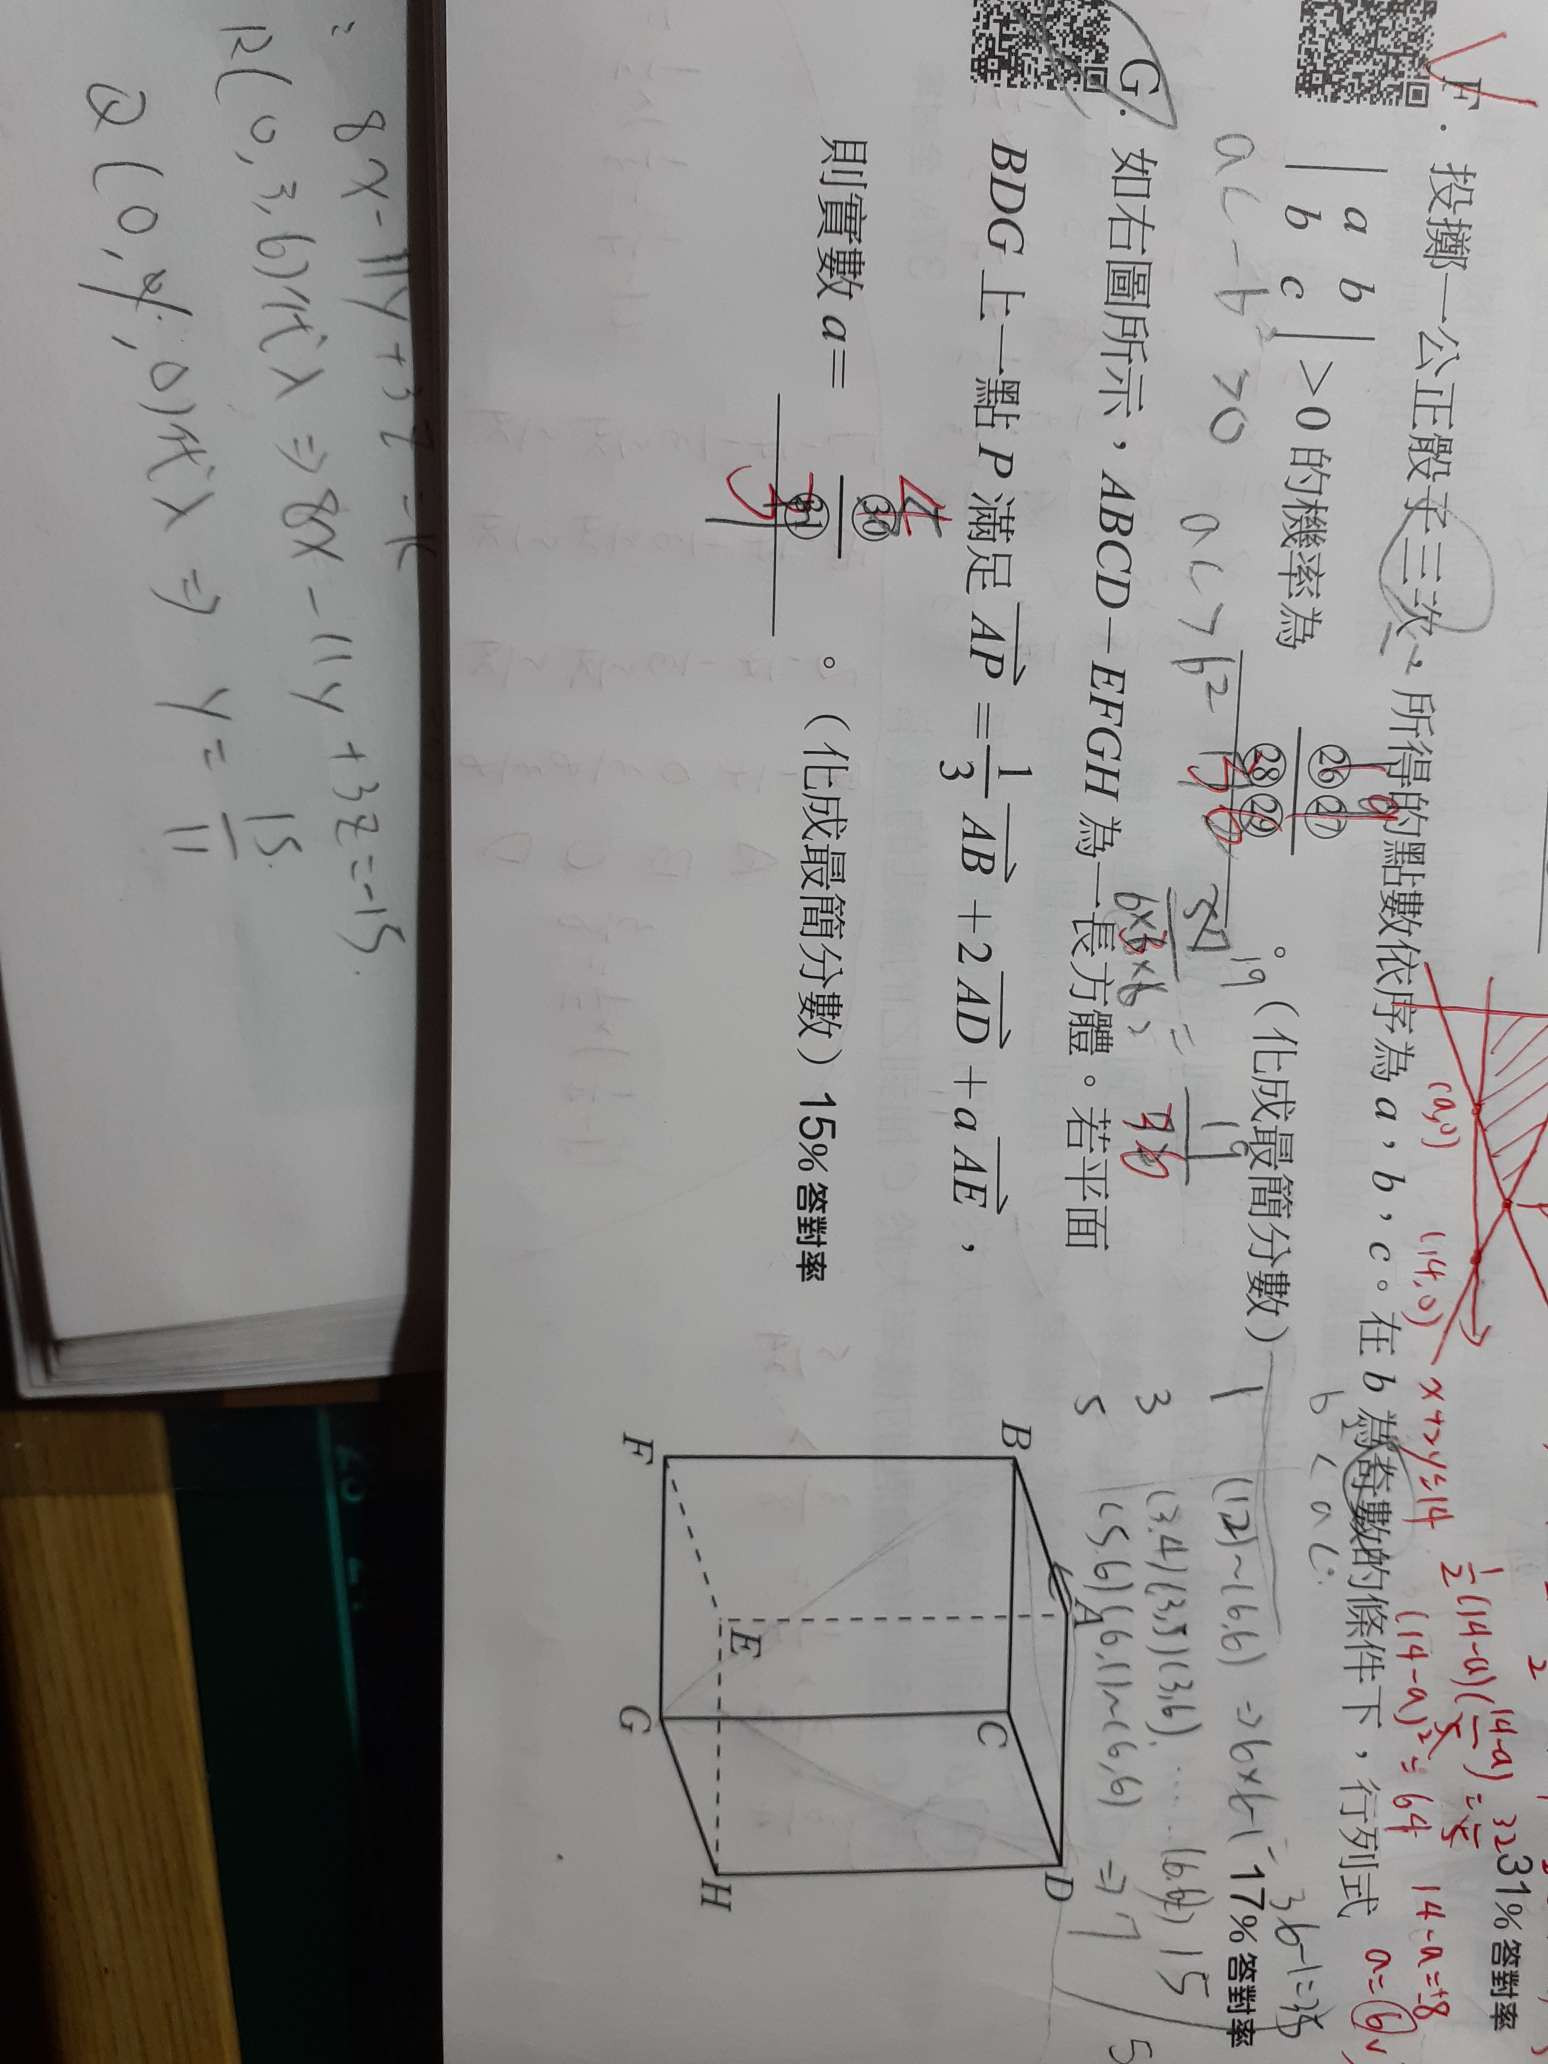 31%答對率
F. 投擲一公正骰子三次,所得的點數依序為 a,b,c。在 b 為奇數的條件下,行列式
| a b |
| b c | >0 的機率為 ㉖㉗ / ㉘㉙ 。(化成最簡分數) 17%答對率
G. 如右圖所示,ABCD-EFGH 為一長方體。若平面
BDG 上一點 P 滿足 AP = 1/3 AB + 2 AD + a AE,
則實數 a= ㉚ / ㉛ 。(化成最簡分數) 15%答對率
B
A
D
C
F
E
G
H
(a,0)
(14,0)
x+2y=14
(14-a)²=64
14-a=±8
a=6
ac-b²>0
ac>b²
19
36
b²<ac
1 (1,2)~(6,6) ⇒ 6×6-1=35
3 (3,4)(3,5)(3,6)
15
5 (5,6)(6,1)~(6,6) ⇒ 7
4
3
8x-11y+3z=k
R(0,3,6)代入 ⇒ 8x-11y+3z=-15.
Q(0,y,0)代入 ⇒ y= 15/11